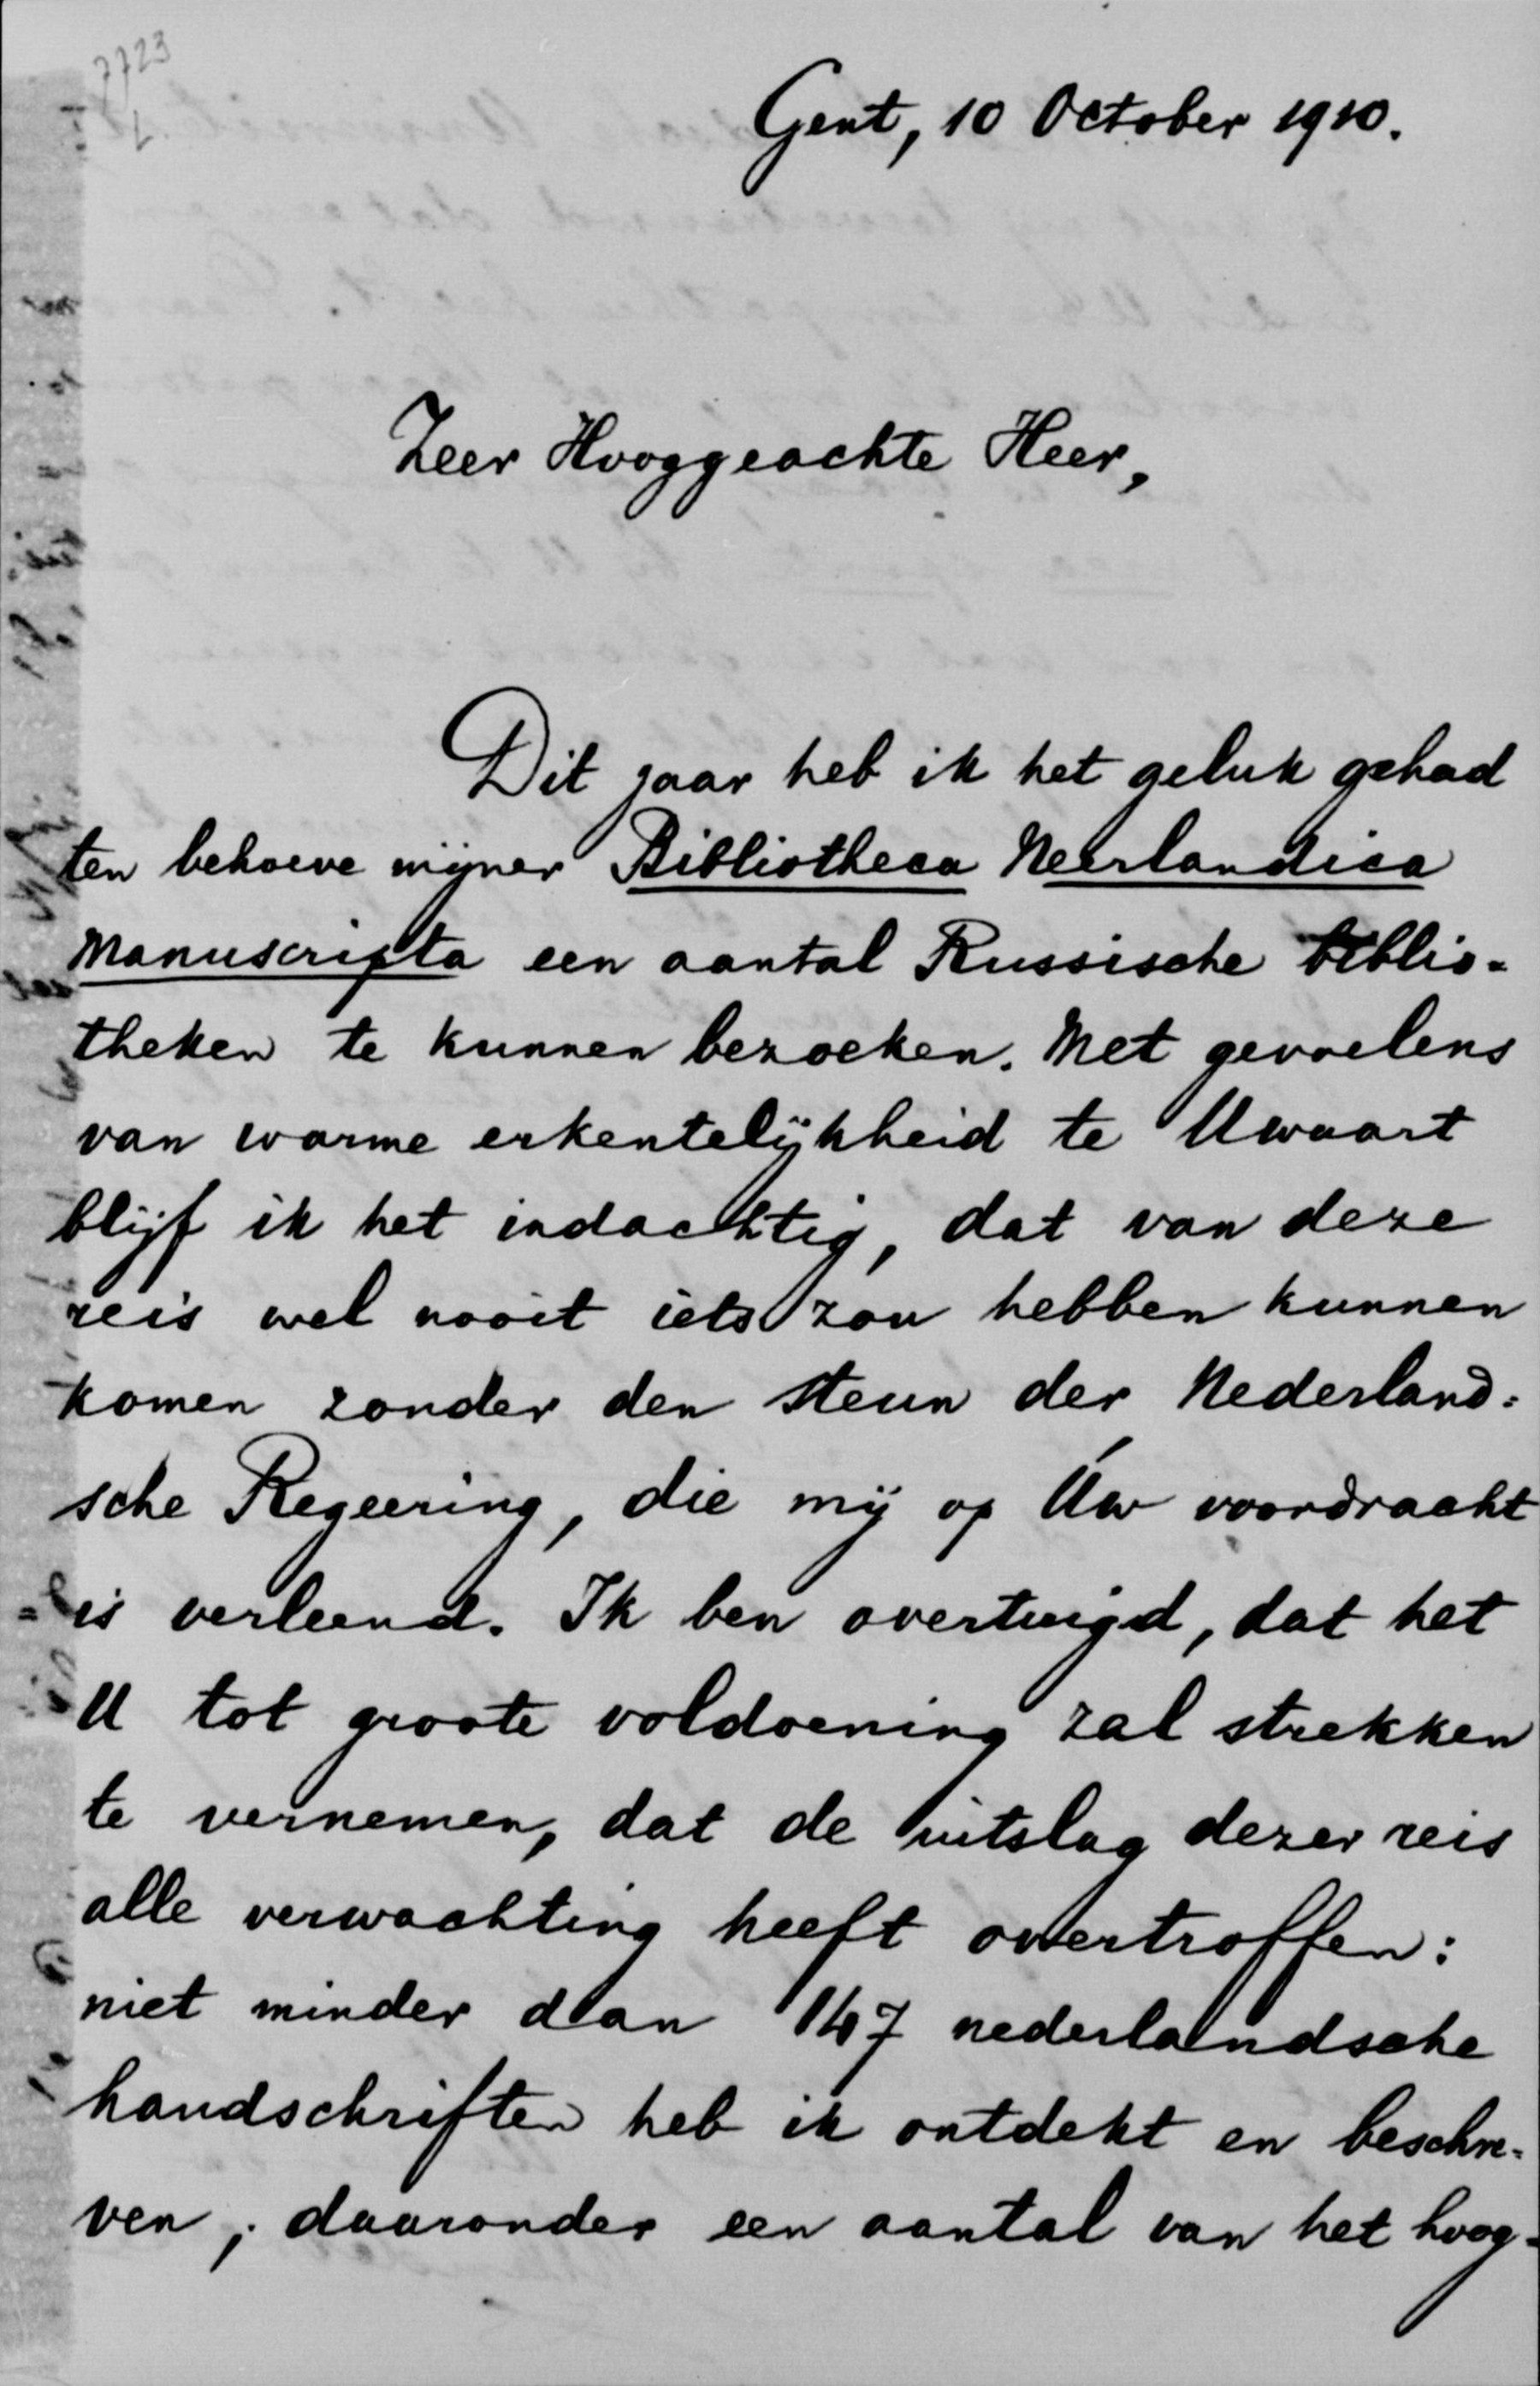 7723
L.
Gent, 10 October 1910.
Zeer Hooggeachte Heer,
Dit jaar heb ik het geluk gehad
ten behoeve mijner Bibliotheca Neerlandica
Manuscripta een aantal Russische biblio-
theken te kunnen bezoeken. Met gevoelens
van warme erkentelijkheid te Uwaart
blijf ik het indachtig, dat van deze
reis wel nooit iets zou hebben kunnen
komen zonder den steun der Nederland-
sche Regeering, die mij op Úw voordracht
is verleend. Ik ben overtuigd, dat het
U tot groote voldoening zal strekken
te vernemen, dat de uitslag dezer reis
alle verwachting heeft overtroffen:
niet minder dan 147 nederlandsche
handschriften heb ik ontdekt en beschre-
ven; daaronder een aantal van het hoog-